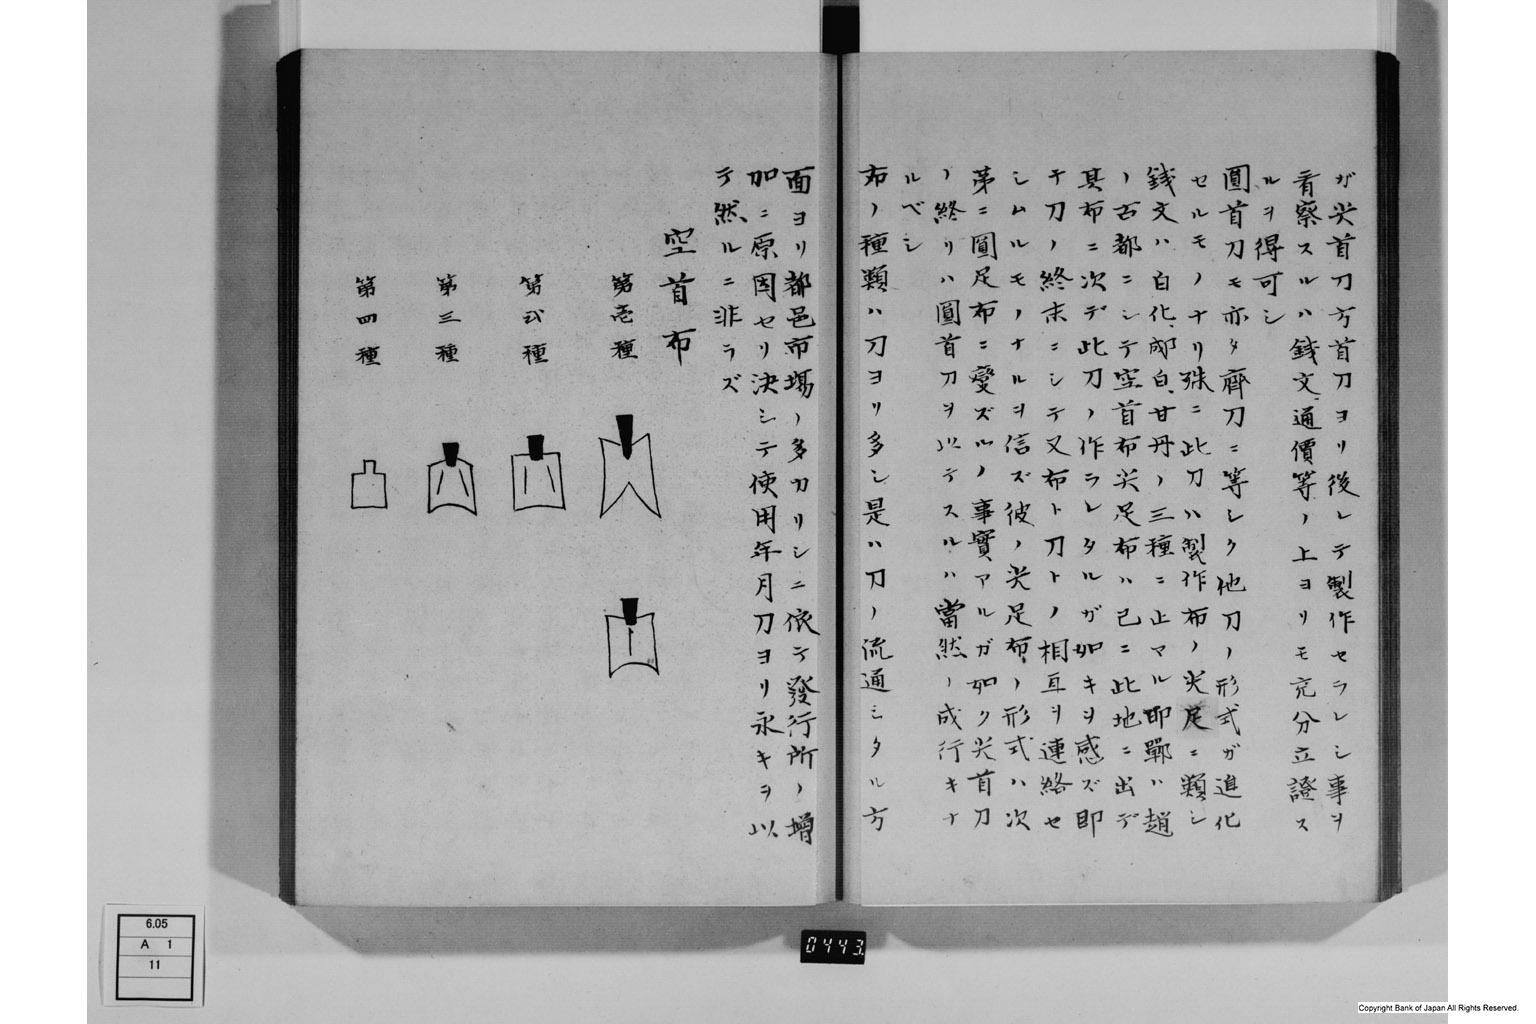 ガ尖首刀方首刀ヨリ後レテ製作セラレシ事ヲ
看察スルハ錢文、通價等ノ上ヨリモ充分立證ス
ルヲ得可シ
圓首刀モ亦タ齊刀ニ等シク他刀ノ形式ガ進化
セルモノナリ殊ニ此刀ハ製作布ノ尖足ニ類シ
錢文ハ白化、邴白、甘丹ノ三種ニ止マル即鄲ハ趙
ノ古都ニシテ空首布尖足布ハ已ニ此地ニ出デ
其布ニ次デ此刀ノ作ラレタルガ如キヲ感ズ即
チ刀ノ終末ニシテ又布ト刀トノ相互ヲ連絡セ
シムルモノナルヲ信ズ彼ノ尖足布ノ形式ハ次
第ニ圓足布ニ變ズルノ事實アルガ如ク尖首刀
ノ終リハ圓首刀ヲ以テスルハ當然ノ成行キナ
ルベシ
布ノ種類ハ刀ヨリ多シ是ハ刀ノ流通シタル方
面ヨリ都邑市場ノ多カリシニ依テ發行所ノ增
加ニ原因セリ決シテ使用年月刀ヨリ永キヲ以
テ然ルニ非ラズ
空首布
第壱種
第弍種
第三種
第四種
6.05
A 1
11
0443
Copyright Bank of Japan All Rights Reserved.